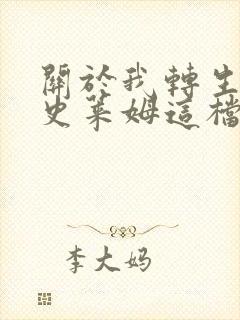 關於我轉生
史萊姆這檔
李大妈